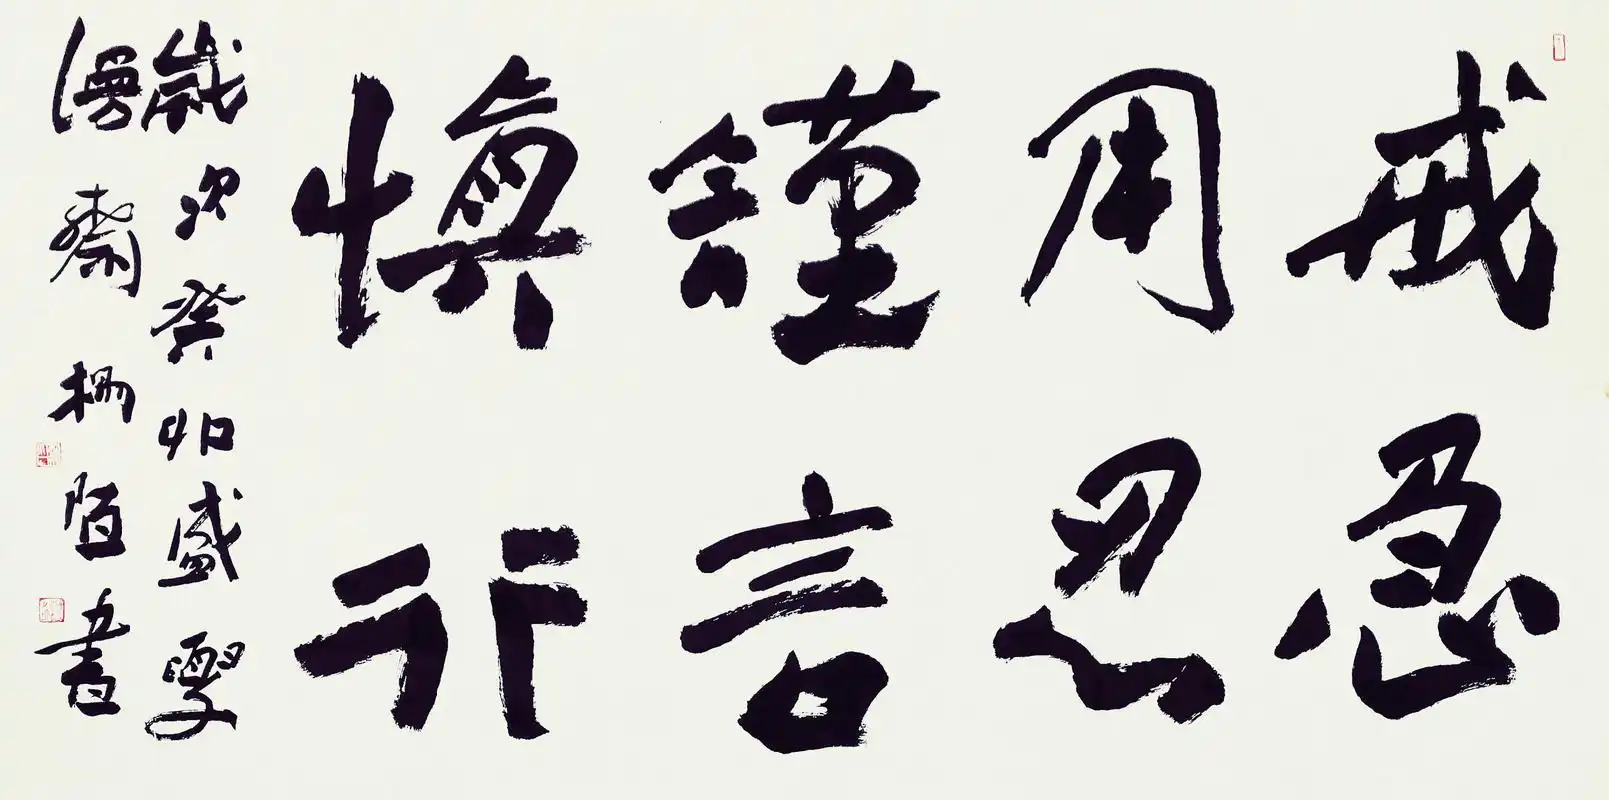 戒急
用忍
謹言
慎行
歲次癸卯盛夏
漫齋柵陌書